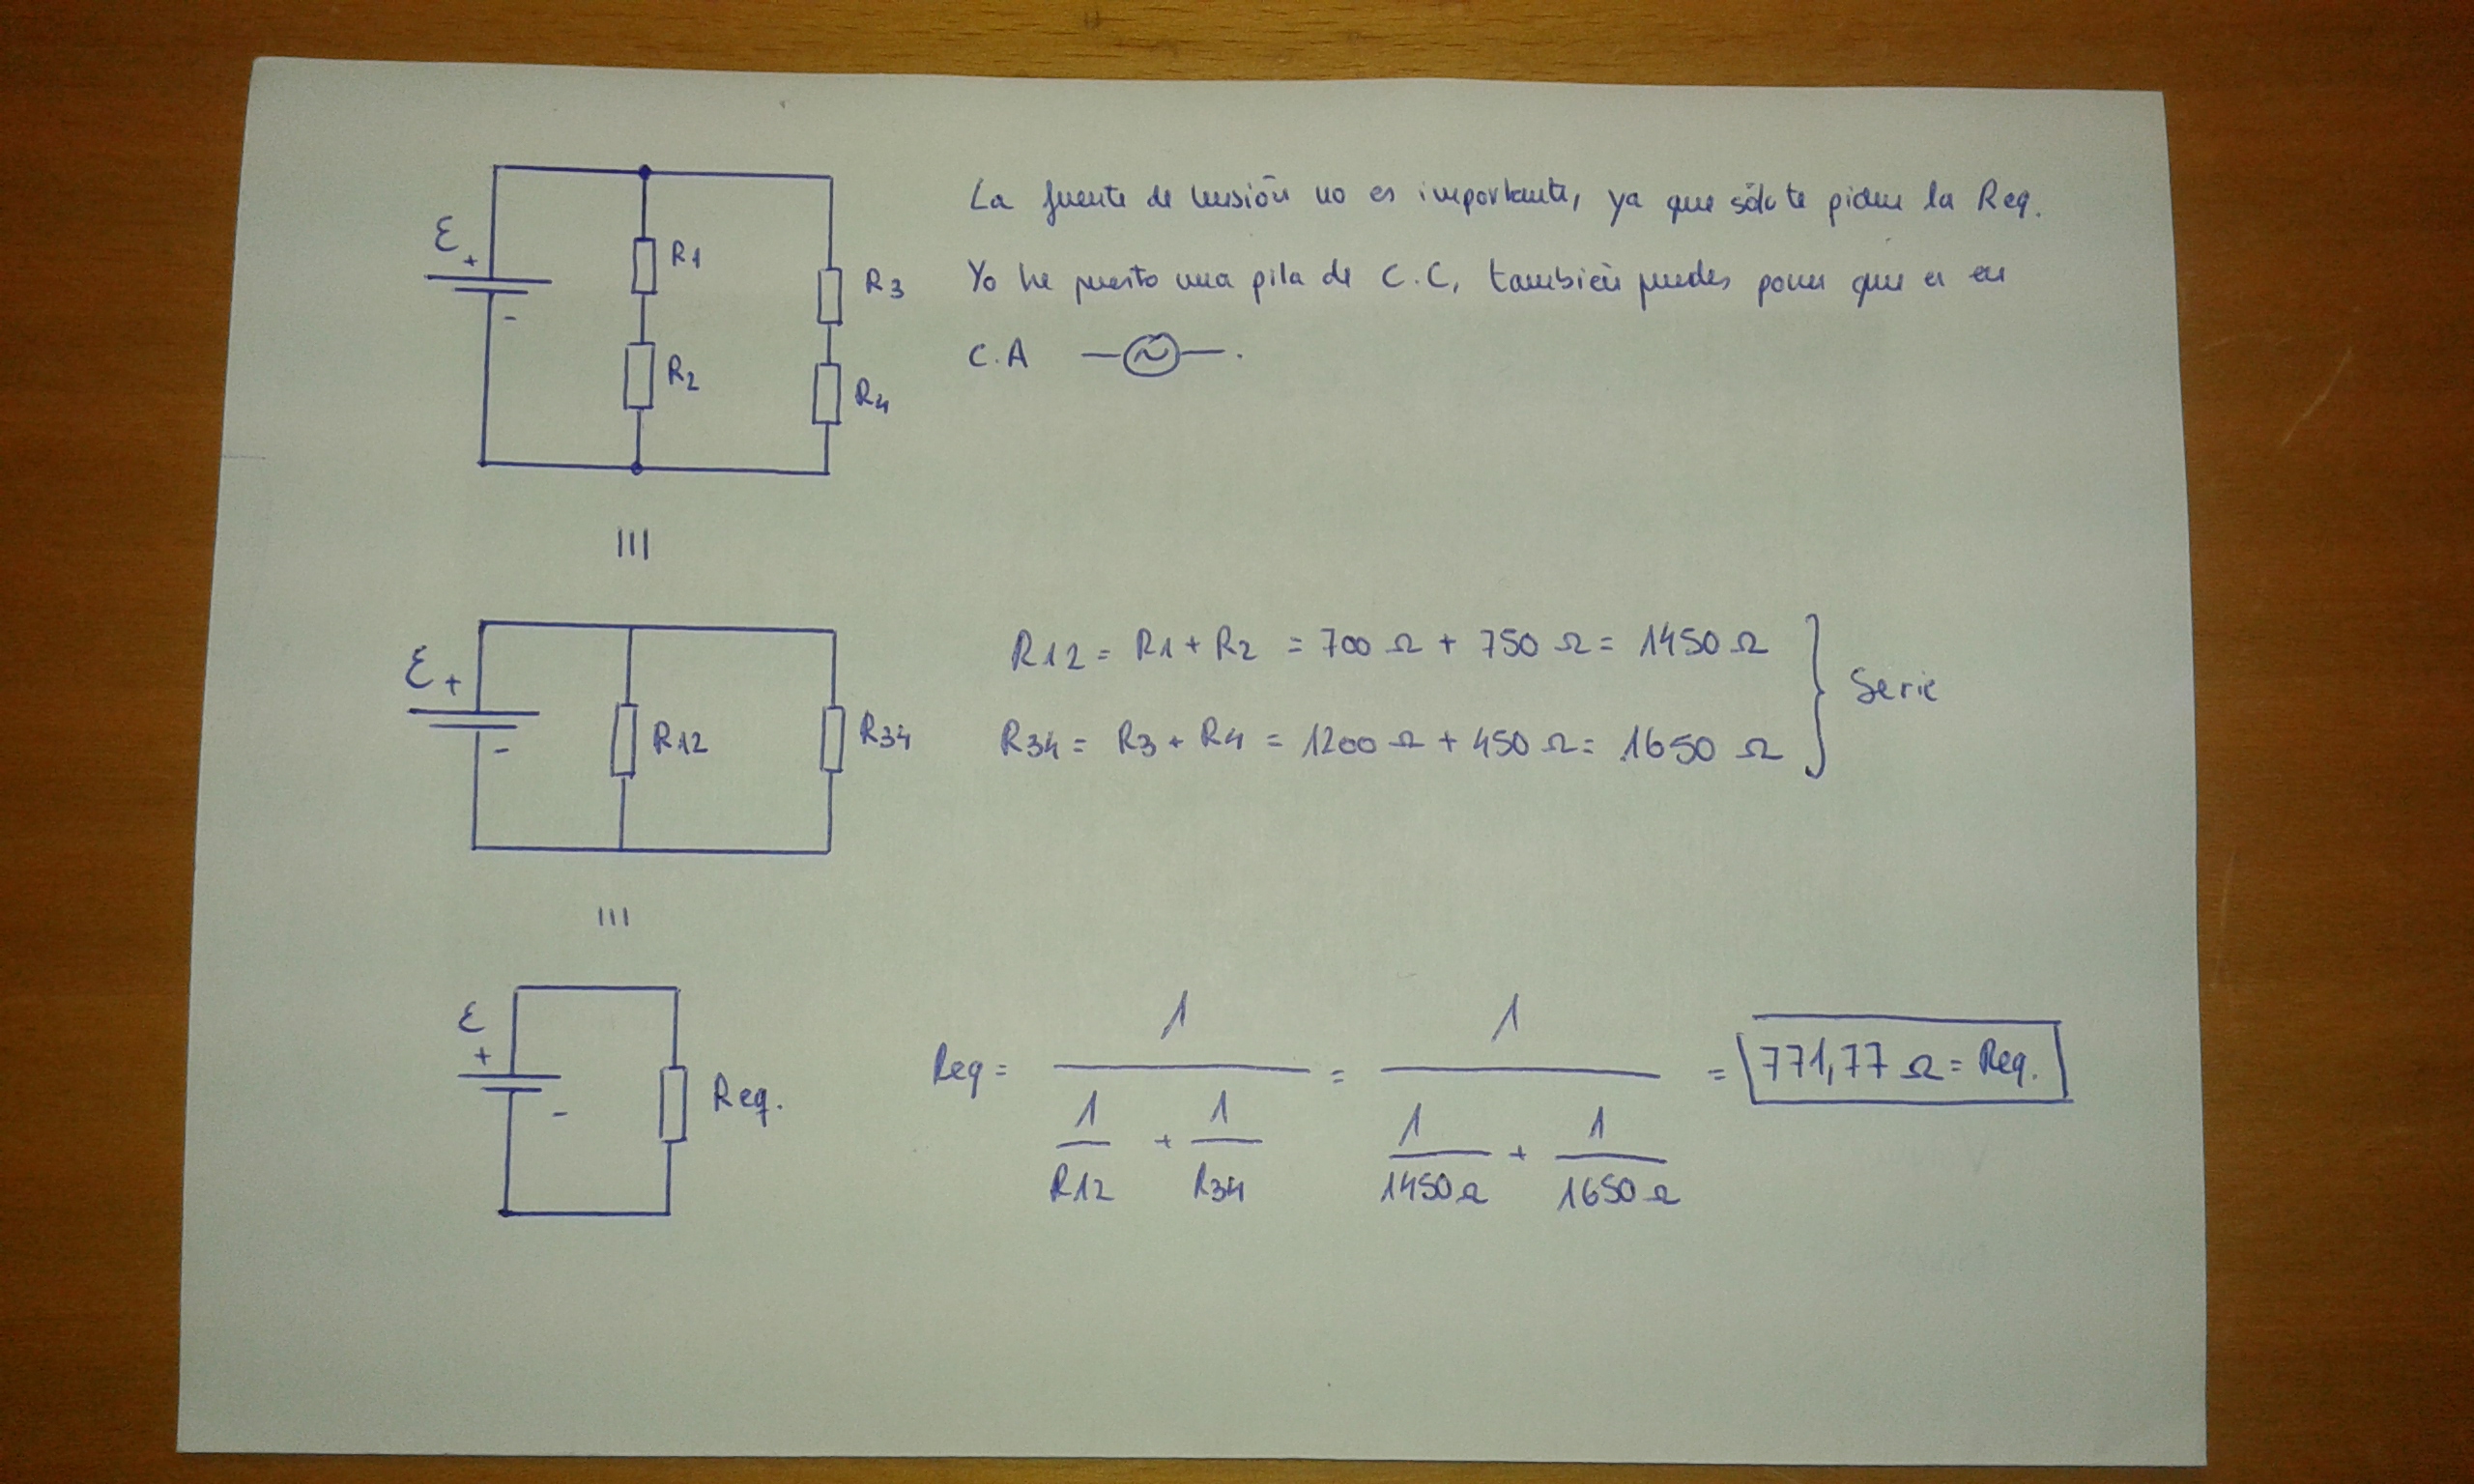 La fuente de tensión no es importante, ya que sólo te piden la Req.
Yo he puesto una pila de C.C, también puedes poner que es en
C.A
ε + -
R1
R2
R3
R4
ε + -
R12
R34
R12 = R1 + R2 = 700 Ω + 750 Ω = 1450 Ω
R34 = R3 + R4 = 1200 Ω + 450 Ω = 1650 Ω
Serie
ε + -
Req.
Req = 1 / (1/R12 + 1/R34) = 1 / (1/1450Ω + 1/1650Ω) = 771,77 Ω = Req.